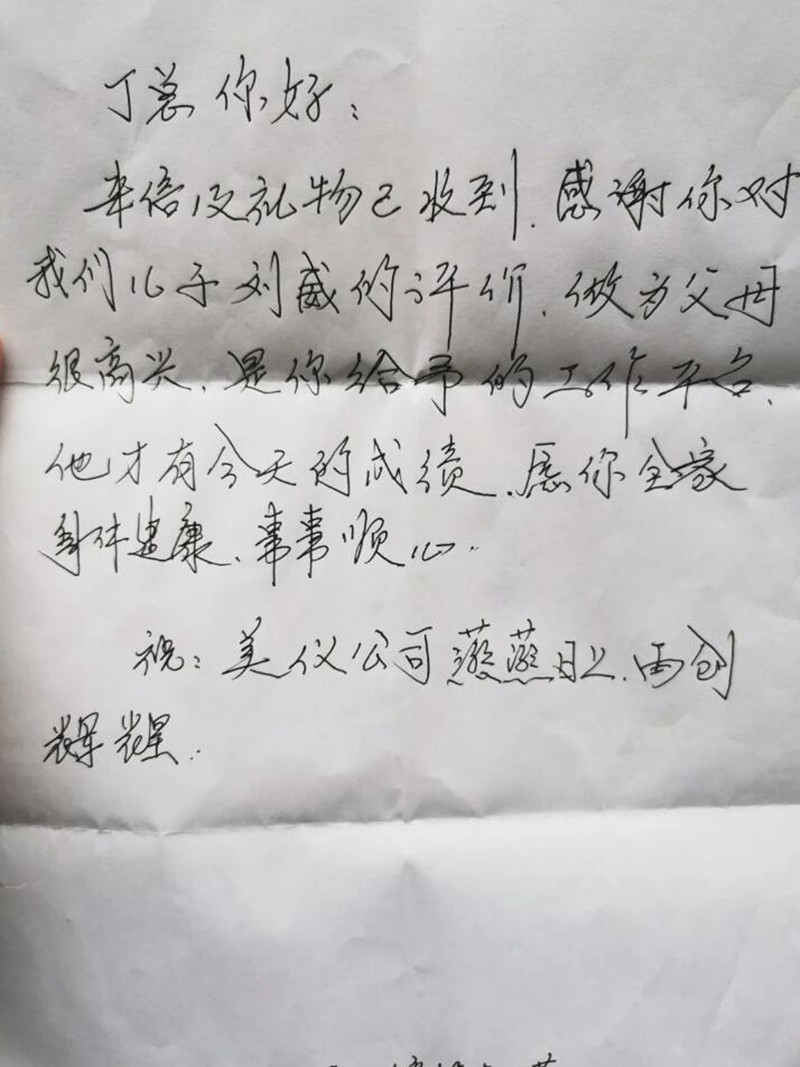 丁总你好：
来信及礼物已收到.感谢你对
我们儿子刘威的评价.做为父母
很高兴.是你给予的工作平台.
他才有今天的成绩.愿你全家
身体健康.事事顺心.
祝：美仪公司蒸蒸日上.再创
辉煌.